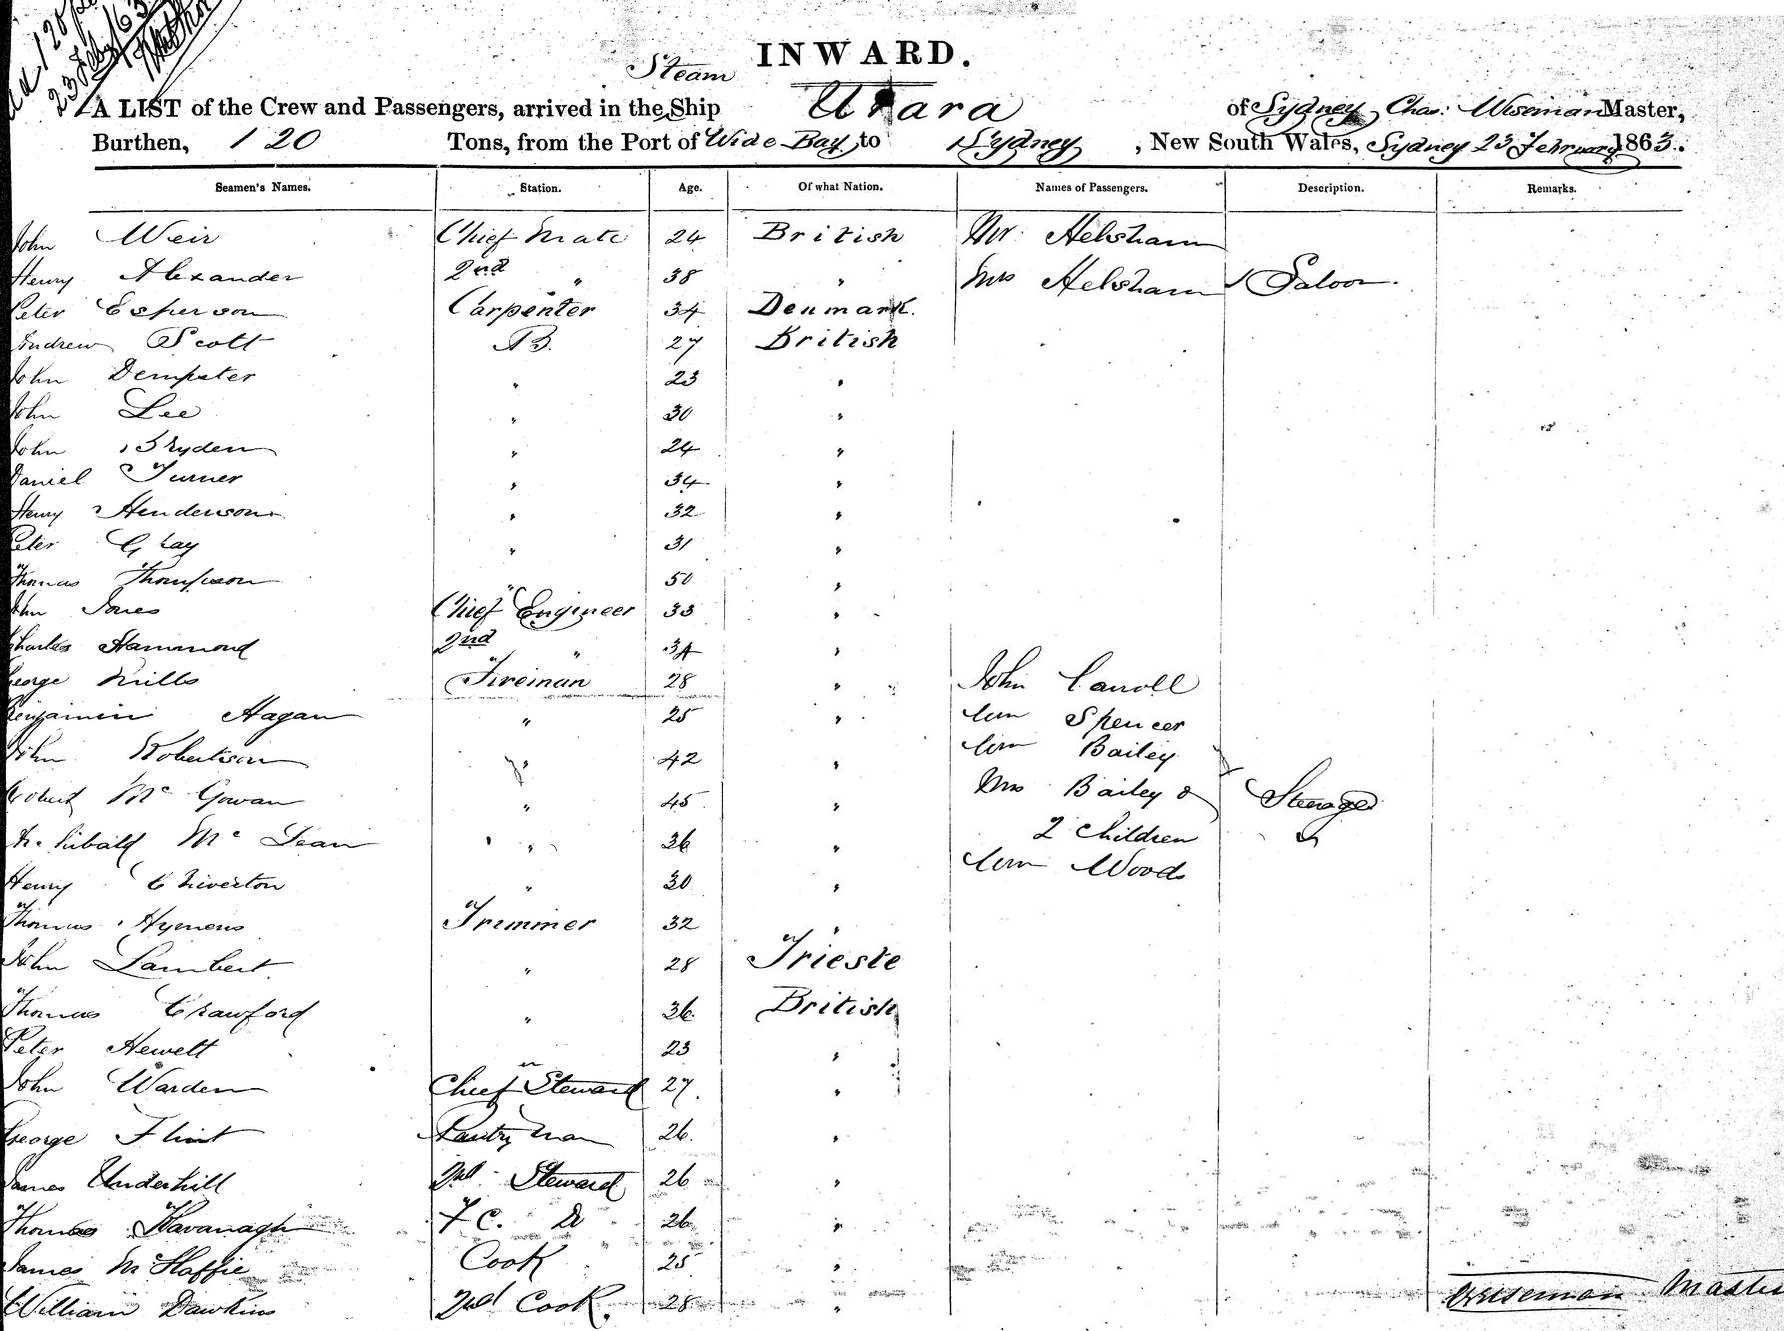 120
23 Feby 63
INWARD.
Steam
A LIST of the Crew and Passengers, arrived in the Ship Urara of Sydney Chas: Wiseman Master,
Burthen, 120 Tons, from the Port of Wide Bay to Sydney, New South Wales, Sydney 23 February 1863.
Seamen's Names. Station. Age. Of what Nation. Names of Passengers. Description. Remarks.
John Weir Chief Mate 24 British Mr. Helsham
Henry Alexander 2nd " 38 " Mrs Helsham Saloon.
Peter Esperson Carpenter 34 Denmark.
Andrew Scott AB. 27 British
John Dempster " 23 "
John Lee " 30 "
John Bryden " 24 "
Daniel Turner " 34 "
Henry Henderson " 32 "
Peter Gray " 31 "
Thomas Thompson " 50 "
John Jones Chief Engineer 33 "
Charles Hammond 2nd " 34 "
George Mills Fireman 28 " John Carroll
Benjamin Hagan " 25 " Wm Spencer
John Robertson " 42 " Wm Bailey
Robert McGowan " 45 " Mrs Bailey & Steerage
Archibald McLean " 36 " 2 Children
Henry Chiverton " 30 " Wm Woods
Thomas Hymens Trimmer 32 "
John Lambert " 28 Trieste
Thomas Crawford " 36 British
Peter Hewett " 23 "
John Warden Chief Steward 27 "
George Flint Pantry man 26 "
James Underhill 2nd Steward 26 "
Thomas Kavanagh F C. Do 26 "
James McHaffie Cook 25 "
William Dawkins 2nd Cook. 28 "
CWiseman Master